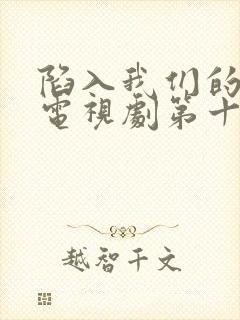 陷入我们的
電視劇第十
越智千文